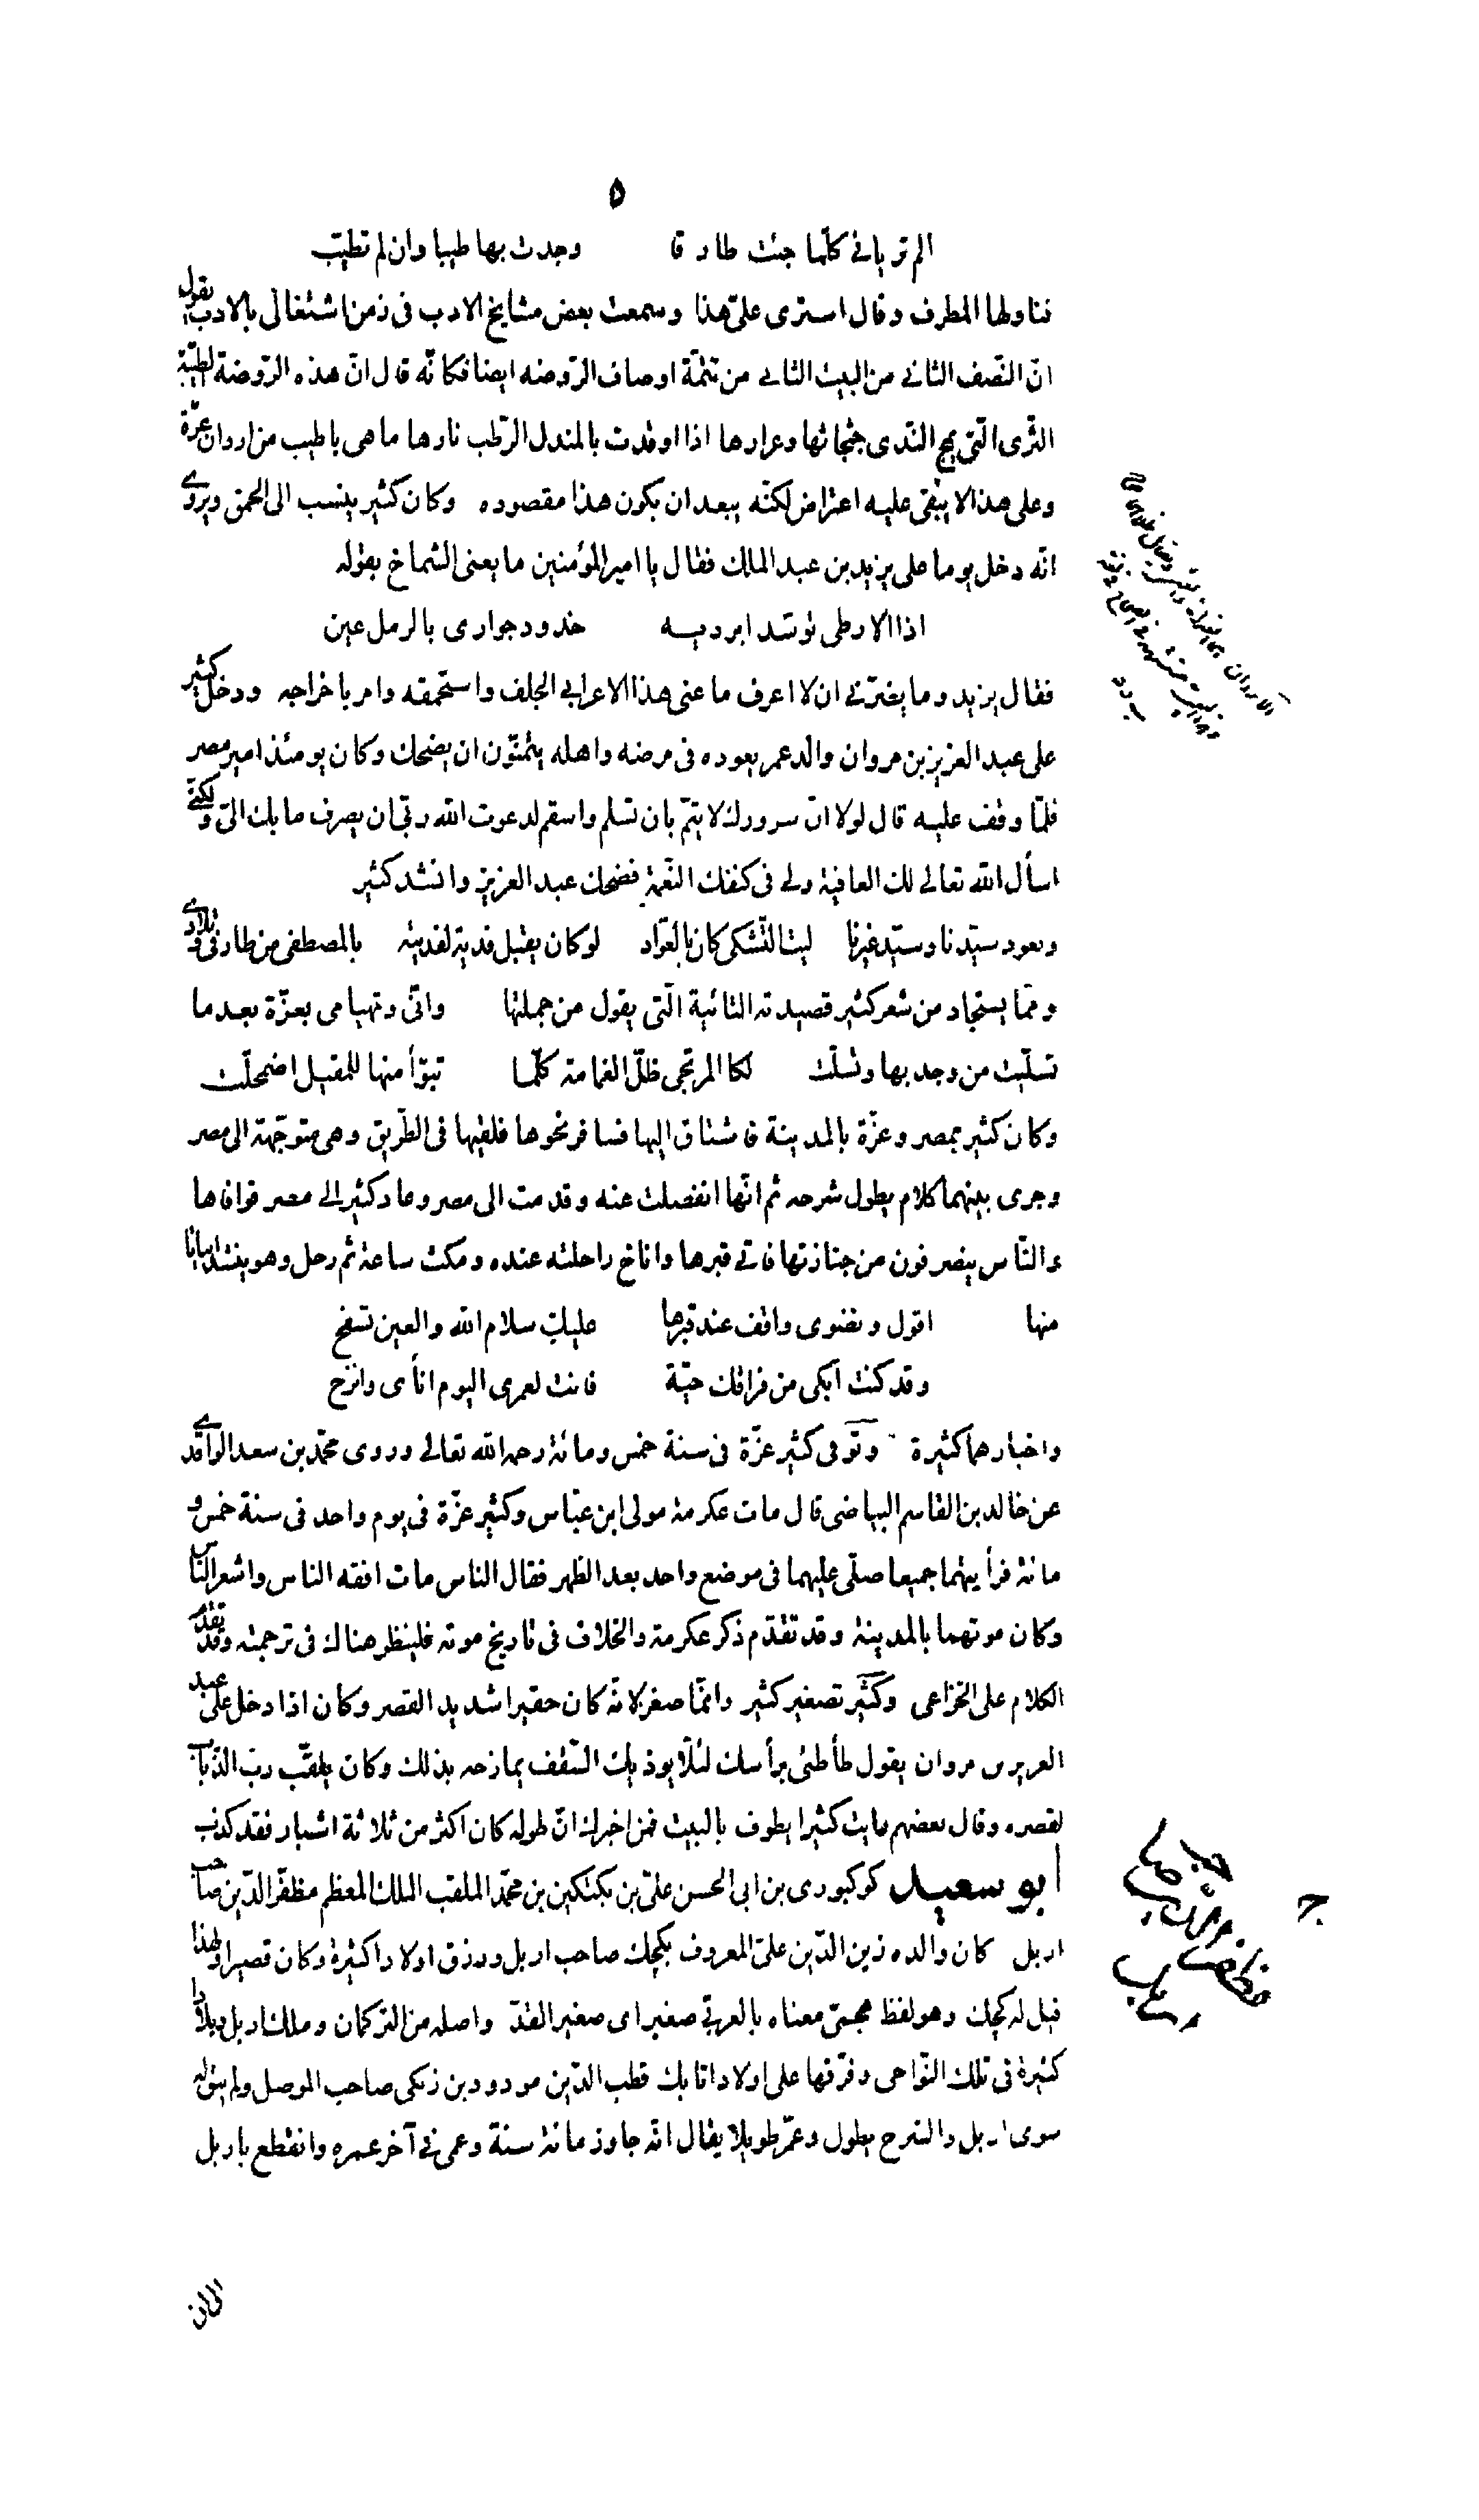 ٥
الم تريانى كلّما جئت طارقا وجدت بها طيبا وان لم تطيّب
فناولها المطرف وقال استرى علىّ هذا وسمعت بعض مشايخ الادب فى زمن اشتغالى بالادب يقول
انّ النّصف الثانى من البيت الثانى من تتمّة اوصاف الرّوضه ايضا فكانّه قال انّ هذه الرّوضة الطيّبة
الثّرى الّتى يمج النّدى جثجاثها وعرارها اذا اوقدت بالمندل الرّطب نارها ما هى باطيب من اردان عزّة
وعلى هذا لا يبقى عليه اعتراض لكنّه يبعد ان يكون هذا مقصوده وكان كثير ينسب الى الحمق ويروى
انّه دخل يوما على يزيد بن عبد الملك فقال يا امير المؤمنين ما يعنى الشماخ بقوله
اذا الارطى توسّد ابرديه خدود جوارى بالرمل عين
فقال يزيد وما يضرّنى ان لا اعرف ما عنى هذا الاعرابى الجلف واستحمقه وامر باخراجه ودخل كثير
على عبد العزيز بن مروان والد عمر يعوده فى مرضه واهله يتمنّون ان يضحك وكان يومئذ امير مصر
فلمّا وقف عليه قال لولا انّ سرورك لا يتمّ بان تسلم واسقم لدعوت الله ربّى ان يصرف ما بك الىّ ولكنّى
اسأل الله تعالى لك العافية ولى فى كنفك النّعمة فضحك عبد العزيز وانشد كثير
ونعود سيّدنا وسيّد غيرنا ليت التّشكى كان بالعوّاد لو كان يقبل فدية لفديته بالمصطفى من طارفى وتلادى
وممّا يستجاد من شعر كثير قصيدته التائية الّتى يقول من جملتها وانّى وتهيامى بعزّة بعد ما
تسلّيت من وجد بها وتسلّت لكالمرتجى ظلّ الغمامة كلّما تبوّأ منها للمقيل اضمحلّت
وكان كثير بمصر وعزّة بالمدينة فاشتاق اليها فسافر نحوها فلقيها فى الطّريق وهى متوجّهة الى مصر
وجرى بينهما كلام يطول شرحه ثم انّها انفصلت عنه وقدمت الى مصر وعاد كثير الى مصر فوافاها
والنّاس ينصرفون من جنازتها فاتى قبرها واناخ راحلته عنده ومكث ساعة ثم رحل وهو ينشد ابياتا
منها اقول ونضوى واقف عند قبرها عليك سلام الله والعين تسفح
وقد كنت ابكى من فراقك حيّة فانت لعمرى اليوم انأى وانزح
واخبارهما كثيرة وتوفى كثير عزّة فى سنة خمس ومائة رحمه الله تعالى وروى محمّد بن سعد الواقدى
عن خالد بن القاسم البياضى قال مات عكرمة مولى ابن عبّاس وكثير عزّة فى يوم واحد فى سنة خمس و
مائة فرأيتهما جميعا صلّى عليهما فى موضع واحد بعد الظهر فقال الناس مات افقه الناس واشعر النّاس
وكان موتهما بالمدينة وقد تقدّم ذكر عكرمة والخلاف فى تاريخ موته فلينظر هناك فى ترجمته وقد تقدّم
الكلام على الخزاعى وكثيّر تصغير كثير وانّما صغر لانّه كان حقيرا شديد القصر وكان اذا دخل على عبد
العزيز بن مروان يقول طأطئ برأسك لئلّا يوذيك السّقف يمازحه بذلك وكان يلقّب ربّ الذّباب
لقصره وقال بعضهم رايت كثيرا يطوف بالبيت فمن اخبرك انّ طوله كان اكثر من ثلاثة اشبار فقد كذب
أبو سعيد كوكبورى بن ابى الحسن علىّ بن بكتكين بن محمّد الملقب الملك المعظم مظفّر الدّين صاحب
اربل كان والده زين الدّين علىّ المعروف بكجك صاحب اربل ورزق اولادا كثيرة وكان قصيرا ولهذا
قيل له كجك وهو لفظ عجمىّ معناه بالعربّى صغير اى صغير القدّ واصله من التركمان وملك اربل وبلادا
كثيرة فى تلك النّواحى وفرّقها على اولاد اتابك قطب الدّين مودود بن زنكى صاحب الموصل ولم يبق له
سوى اربل والشرح يطول وعمّر طويلا يقال انّه جاوز مائة سنة وعمى فى آخر عمره وانقطع باربل